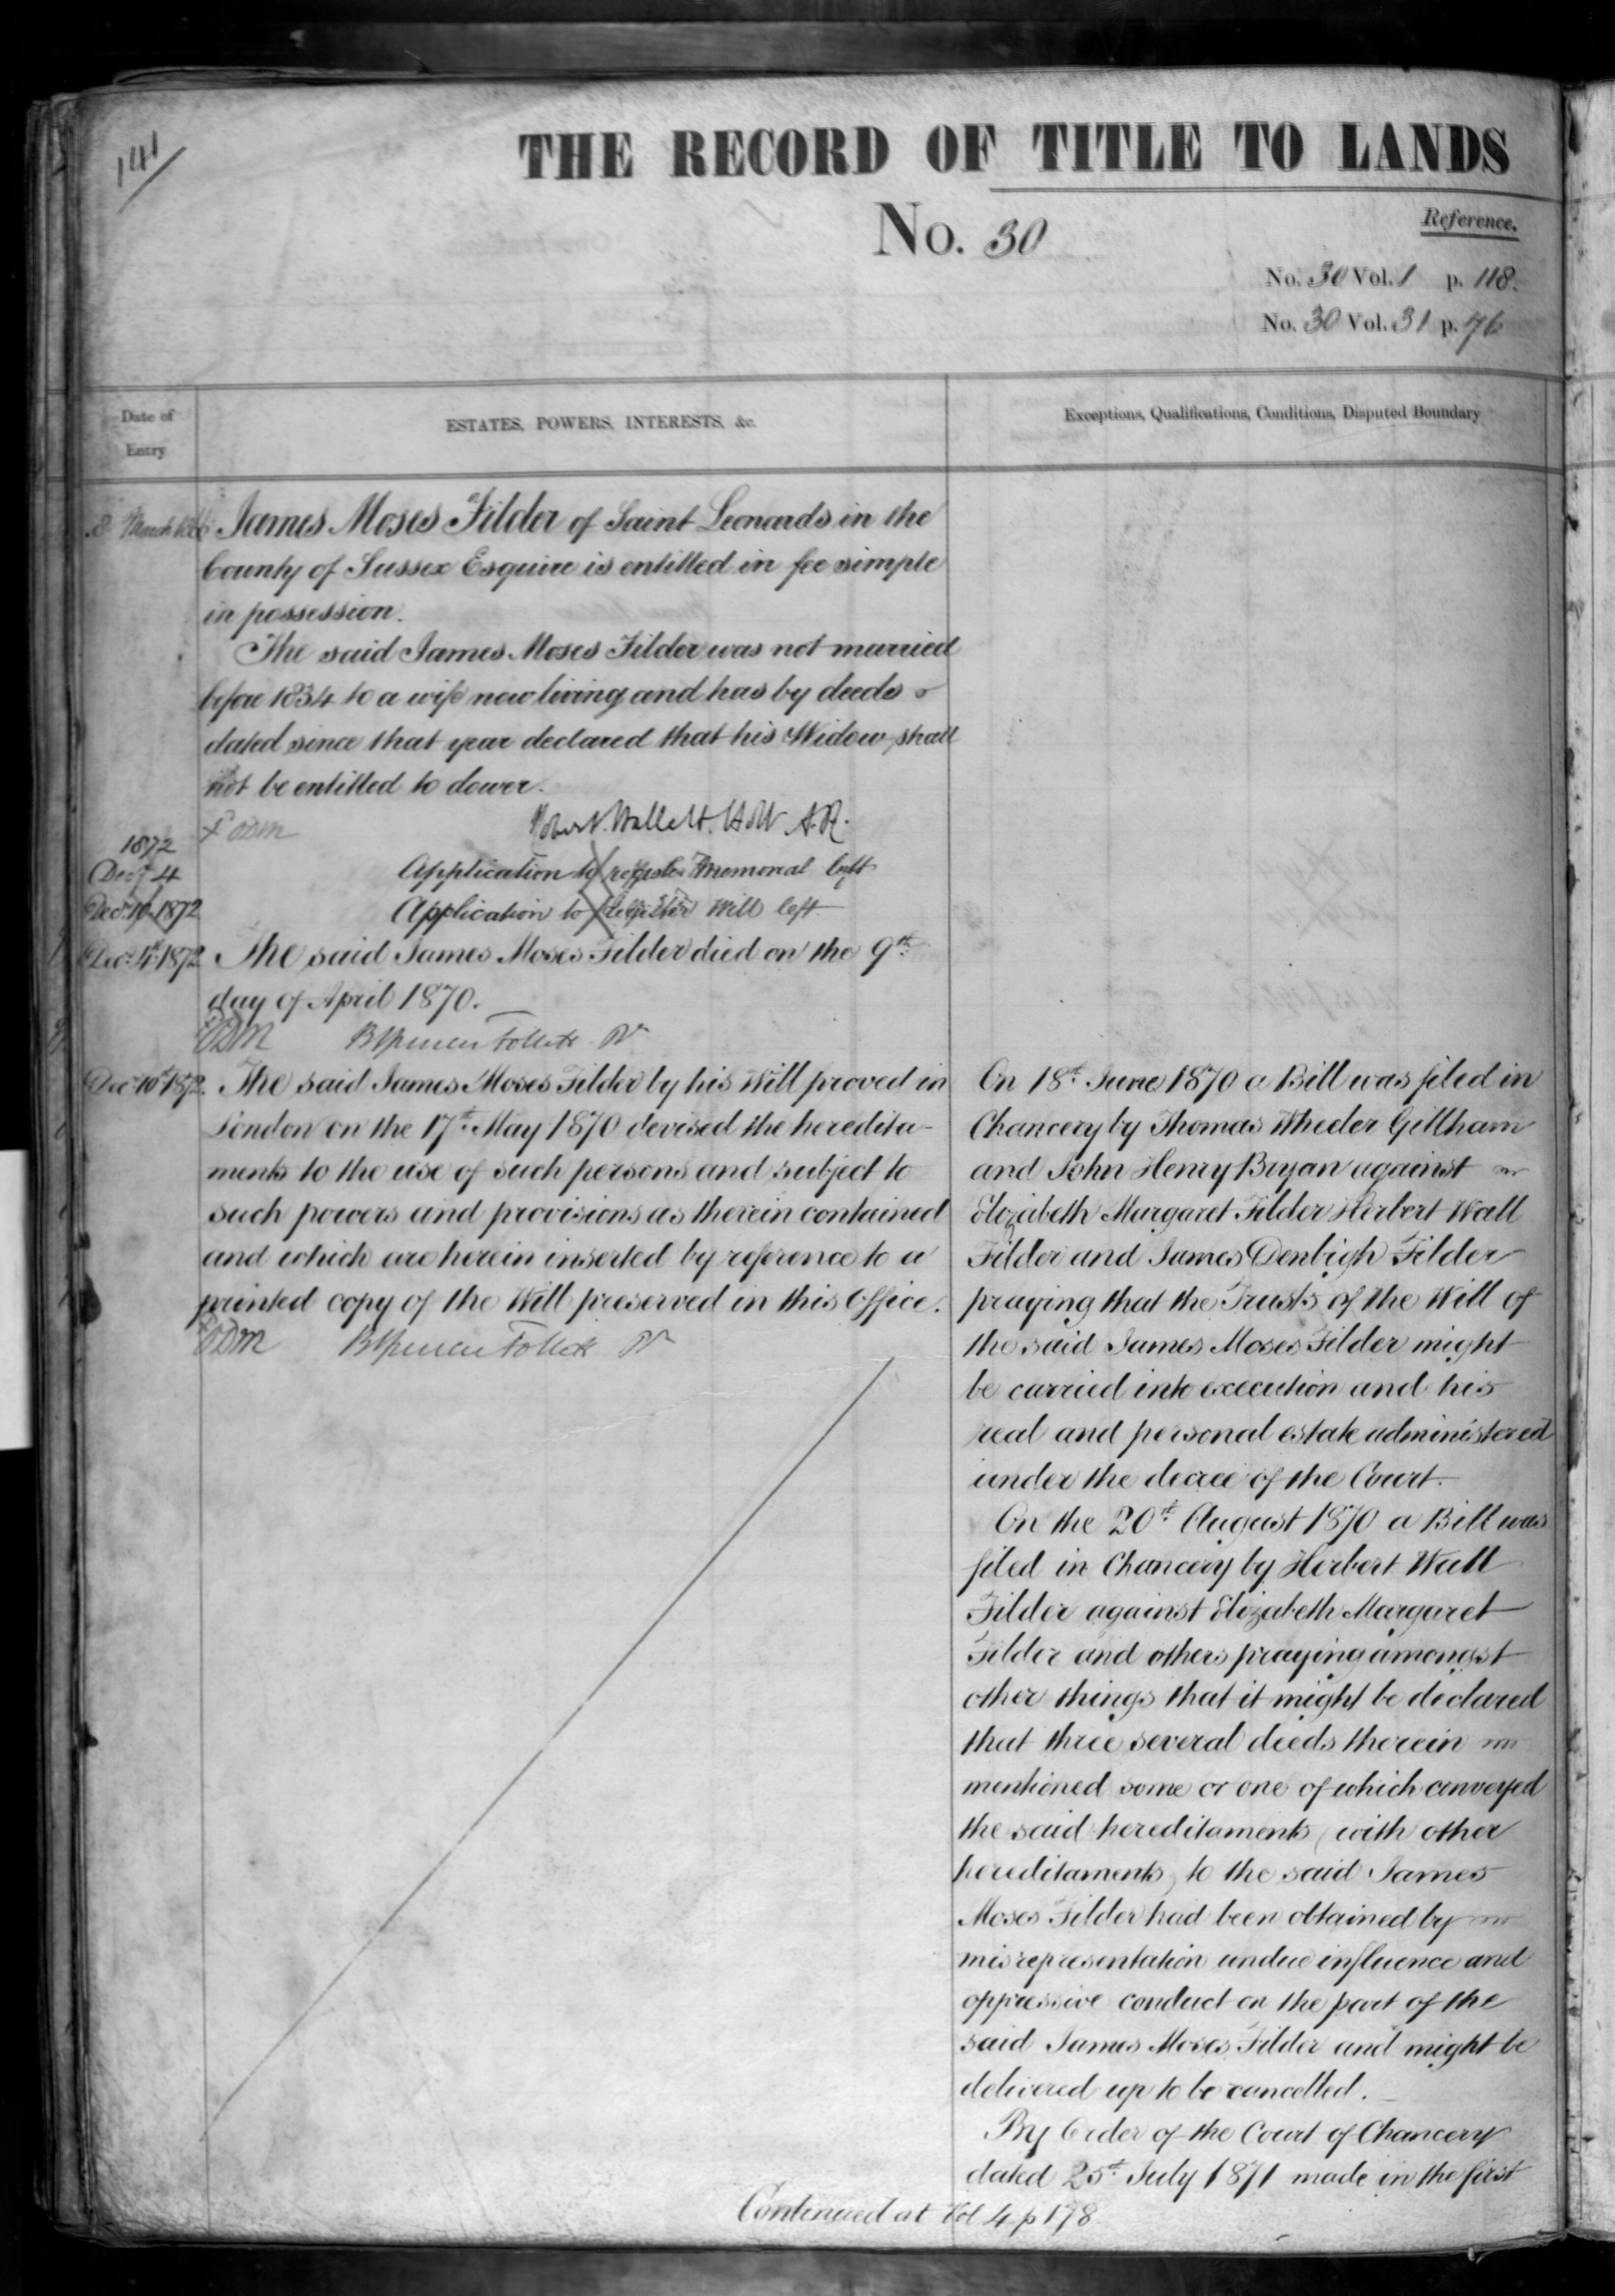 141
THE RECORD OF TITLE TO LANDS
No. 30
Reference.
No. 30 Vol. 1 p. 118.
No. 30 Vol. 31 p. 76
Date of
Entry
ESTATES, POWERS, INTERESTS, &c.
Exceptions, Qualifications, Conditions, Disputed Boundary
8 March James Moses Filder of Saint Leonards in the
County of Sussex Esquire is entitled in fee simple
in possession.
The said James Moses Filder was not married
before 1834 to a wife now living and has by deeds
dated since that year declared that his Widow shall
not be entitled to dower.
Robert Hallett Holt A.R.
1872
Decr 4 Application to register Memorial left
Decr 10 1872 Application to register Will left
Decr 4th 1872 The said James Moses Filder died on the 9th
day of April 1870.
ODM
Decr 10th 1872. The said James Moses Filder by his Will proved in
London on the 17th May 1870 devised the heredita-
ments to the use of such persons and subject to
such powers and provisions as therein contained
and which are herein inserted by reference to a
printed copy of the Will preserved in this Office.
ODM
On 18th June 1870 a Bill was filed in
Chancery by Thomas Wheeler Gillham
and John Henry Bryan against
Elizabeth Margaret Filder Herbert Wall
Filder and James Denbigh Filder
praying that the Trusts of the Will of
the said James Moses Filder might
be carried into execution and his
real and personal estate administered
under the decree of the Court.
On the 20th August 1870 a Bill was
filed in Chancery by Herbert Wall
Filder against Elizabeth Margaret
Filder and others praying amongst
other things that it might be declared
that three several deeds therein
mentioned some or one of which conveyed
the said hereditaments (with other
hereditaments) to the said James
Moses Filder had been obtained by
misrepresentation undue influence and
oppressive conduct on the part of the
said James Moses Filder and might be
delivered up to be cancelled.
By Order of the Court of Chancery
dated 25th July 1871 made in the first
Continued at Vol 4 p 178